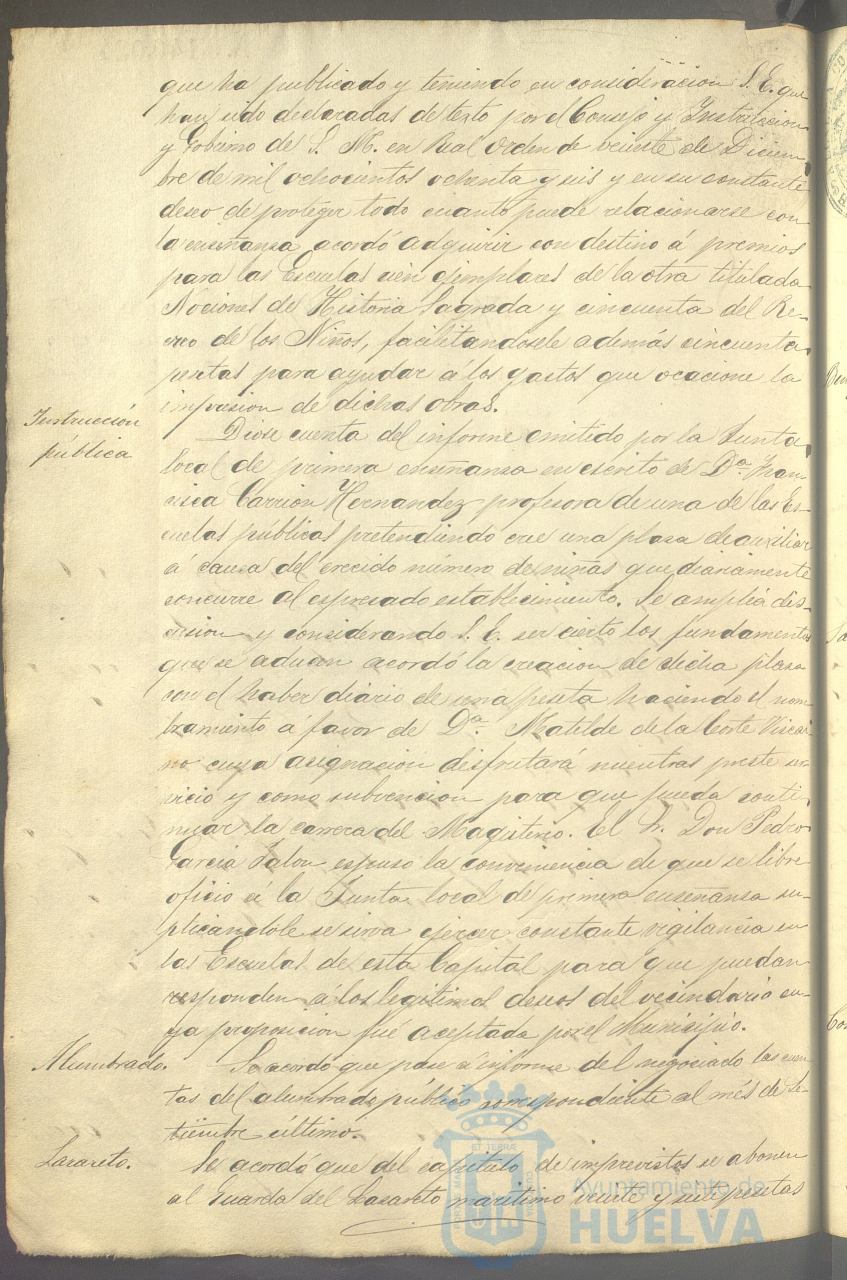 que ha publicado y teniendo en consideracion S. E. que
han sido declaradas de texto por el Consejo y Instruccion
y Gobierno de S. M. en Real orden de veinte de Diciem-
bre de mil ochocientos ochenta y seis y en su constante
deseo de proteger todo cuanto puede relacionarse con
la enseñanza acordó adquirir con destino á premios
para las Escuelas cien ejemplares de la otra titulada
Nociones de Historia Sagrada y cincuenta del Re-
creo de los Niños, facilitandosele además cincuenta
pesetas para ayudar a los gastos que ocacione la
impresion de dichas obras.
Instrucción
pública
Diose cuenta del informe emitido por la Junta
local de primera enseñanza en escrito de Dª. Fran-
cisca Carrion Hernandez profesora de una de las Es-
cuelas públicas pretendiendo cree una plaza de auxiliar
á causa del crecido número de niñas que diariamente
concurre al espresado establecimiento. Se amplia dis-
cusion y considerando S. E. ser cierto los fundamentos
que se aducen acordó la creacion de dicha plaza
con el haber diario de una peseta haciendo el nom-
bramiento á favor de Dª. Matilde de la Corte Viscai-
no cuya asignacion disfrutará mientras preste ser-
vicio y como subvencion para que pueda conti-
nuar la carrera del Magisterio. El Sr. Don Pedro
Garcia Jalon espuso la conveniencia de que se libre
oficio á la Junta local de primera enseñanza su-
plicandole se sirva ejercer constante vigilancia en
las Escuelas de esta Capital para que puedan
responden á los legitimos deseos del vecindario cu-
ya proposicion fué aceptada por el Municipio.
Alumbrado.
Se acordó que pase á informe del negociado las cuen-
tas del alumbrado público correspondiente al més de Se-
tiembre último.
Lazareto.
Se acordó que del capitulo de imprevistos se abonen
al Guarda del Lazareto maritimo veinte y seis pesetas
Ayuntamiento de
HUELVA